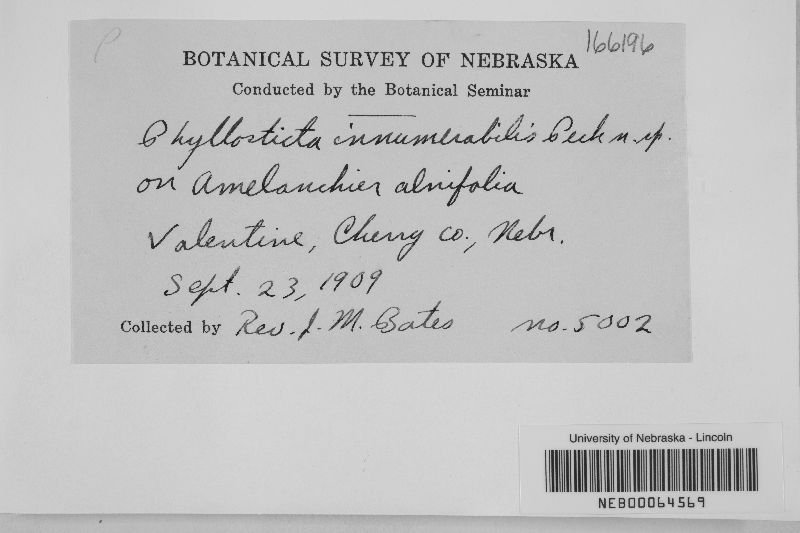 P
166196
BOTANICAL SURVEY OF NEBRASKA
Conducted by the Botanical Seminar
Phyllosticta innumerabilis Peck n. sp.
on Amelanchier alnifolia
Valentine, Cherry co., Nebr.
Sept. 23, 1909
Collected by Rev. J. M. Bates no. 5002
University of Nebraska - Lincoln
NEB00064569